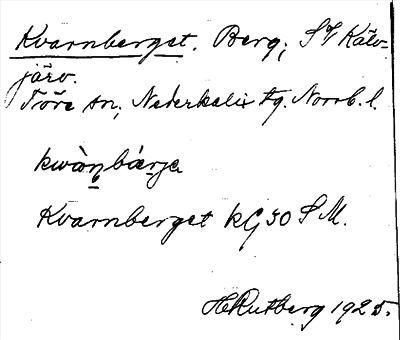 Kvarnberget. Berg; SV Kälv-
järv.
Töre sn; Nederkalix tg. Norrb. l.
kwàṇbæ̀rja
Kvarnberget kG 30 S M.
H Rutberg 1925.